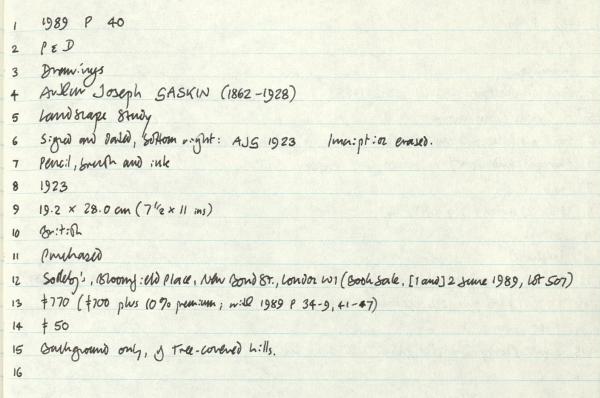 1 1989 P 40
2 P & D
3 Drawings
4 Arthur Joseph GASKIN (1862-1928)
5 Landscape Study
6 Signed and Dated, bottom right: AJG 1923 Inscription erased.
7 Pencil, brush and ink
8 1923
9 19.2 × 28.0 cm (7 1/2 × 11 ins)
10 British
11 Purchased
12 Sotheby's, Bloomfield Place, New Bond St., London W1 (Book Sale, [1 and] 2 June 1989, Lot 507)
13 £770 (£700 plus 10% premium; with 1989 P 34-9, 41-47)
14 £50
15 Background only, of tree-covered hills.
16